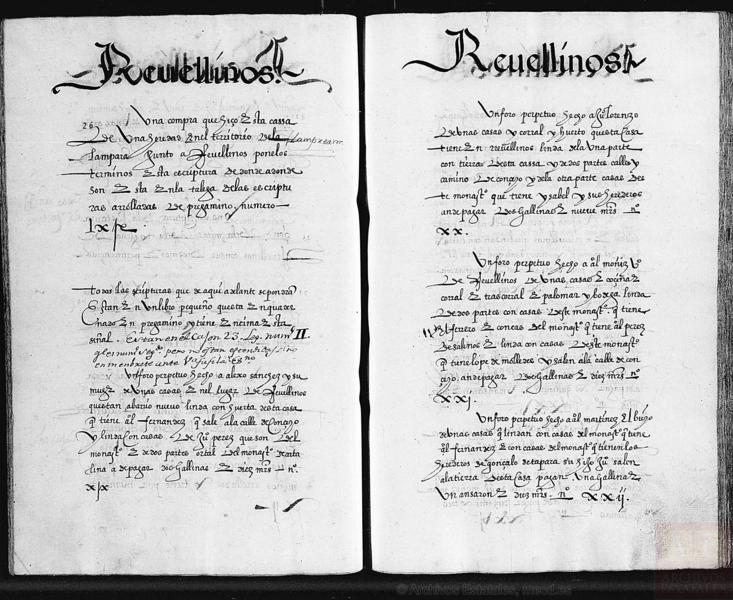 Reuellinos.
26
Una compra que hiço Esta cassa
De Una heredad Enel territorio Dela
Lampara Junto a Reuellinos ponelos
terminos Esta escriptura de donde a donde
son Esta Enla talega delas escriptu
ras arrolladas De pregamino, numero
lxjx
todas las scripturas que de aqui adelante se pondrã
Estan En Un libro pequeño questa Enquader
nado En pregamino y tiene Encima Esta
señal. Estan en el Cajon 23. Leg. num. II
Un foro perpetuo hecho a alexo sanchez y su
muger de Unas casas Enel lugar De Reuellinos
questan a barrio nueuo linda con huerta desta casa
q̃ tiene al. fernandez q̃ sale ala calle de Conçejo
y linda Con casas. De Juº perez que son Del
monastº E de dos partes ortal del monastº de cata
lina a de pagar dos Gallinas E diez mrs. nº
xjx
Reuellinos
Un foro perpetuo hecho a Juº Lorenzo
de Unas casas y corral y huerto questa Casa
tiene En Reuellinos linda dela Una parte
con tierra desta cassa y de dos partes calle y
camino de Conçejo y dela otra parte casas des
te monastº que tiene ysabel y sus herederos
an de pagar Dos Gallinas E nueue mrs nº
xx.
Un foro perpetuo hecho a al. moñiz Vº
De Reuellinos De Unas casas E cocina E
corral E trascorral E palomar y bodega linda
de dos partes con casas deste monastº. q̃ tiene
El herrero E con casas del monastº q̃ tiene al. perez
De salinos E linda con casas deste monastº
q̃ tiene lope de molledes y salen ala calle de con
çejo. an de pagar. dos Gallinas E diez mrs. nº
xxj.
Un foro perpetuo hecho a al. martinez El buho
de Unas casas q̃ lindan con casas del monastº q̃ tiene
al. fernandez E con casas del monastº q̃ tienen los
herederos de gonçalo de tapara su hijo Juº salen
ala tierra desta Casa pagan Una Gallina E
Un ansaron E diez mrs. nº xxij.
© Archivos Estatales, mecd.es